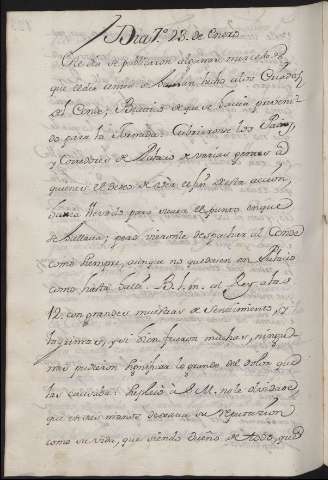 Dia 7º 23. de Enero
Este dia se publicaron algunas mercedes
que el dia antes se havian hecho a los Criados
del Conde; Respecto de que se havia preveni
do para la Jornada. Cubrieronse los Patios,
y Corredores de Palacio de varias gentes a
quienes el deseo de ver el fin de esta accion,
havia llevado para ver el punto en que
se hallava; pero vieronle despachar al Conde
como siempre, aunque no quedò en Palacio
como hasta halli. B. l. m. al Rey a las
12. con grandes muestras de sentimiento, y
lagrimas, y si bien fueron muchas, ningu
nas pudieron significar lo grande del dolor que
las causaba: Replicò à S. M. no le olvidase
que en su mente deseaba su reputacion
como su vida, que siendo dueño de todo, que